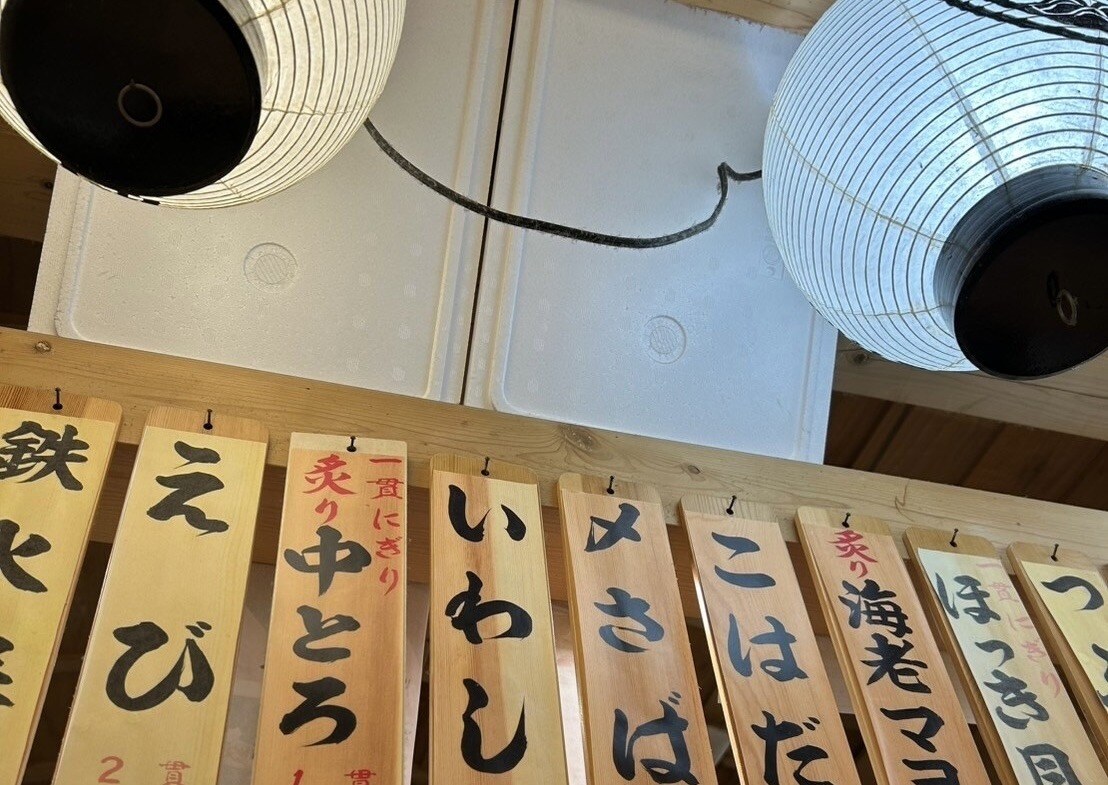 鉄火
えび
2貫
一貫にぎり
炙り中とろ
1貫
いわし
〆さば
こはだ
炙り海老マヨ
一貫にぎり
ほっき貝
つ